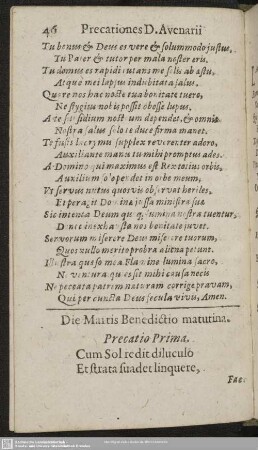 46 Precationes D. Avenarii
Tu bonus & Deus es vere & solummodo justus,
Tu Pater & tutor per mala noster eris.
Tu domus es rapidi vitans me solis ab æstu,
Atque mei lapsus indubitata salus,
Quare nos hac nocte tua bonitate tuere,
Ne stygius nobis possit obesse lupus.
A te præsidium noctium dependet, & omnis
Nostra salus solo te duce firma manet.
Te fusis lacrymis supplex reverenter adoro,
Auxiliante manu tu mihi promptus ades.
A Domino qui maximus est Rex totius orbis,
Auxilium dependet in orbe meum,
Ut servus nutus quosvis observat heriles,
Et peragit Dominæ jussa ministra suæ
Sic intenta Deum lumina nostra tuentur,
Donec inexhausta nos bonitate juvet.
Servorum miserere Deus miserere tuorum,
Quos nullo merito probra petunt.
Illustra quæso mea lumine lumina sacro,
Ne ventura quies sit mihi causa necis
Ne peccata patrem naturam corrige pravam,
Qui per cuncta Deus secula vivis, Amen.
Die Martis Benedictio matutina.
Precatio Prima.
Cum Sol redit diluculo
Et strata suadet linquere,
Fac